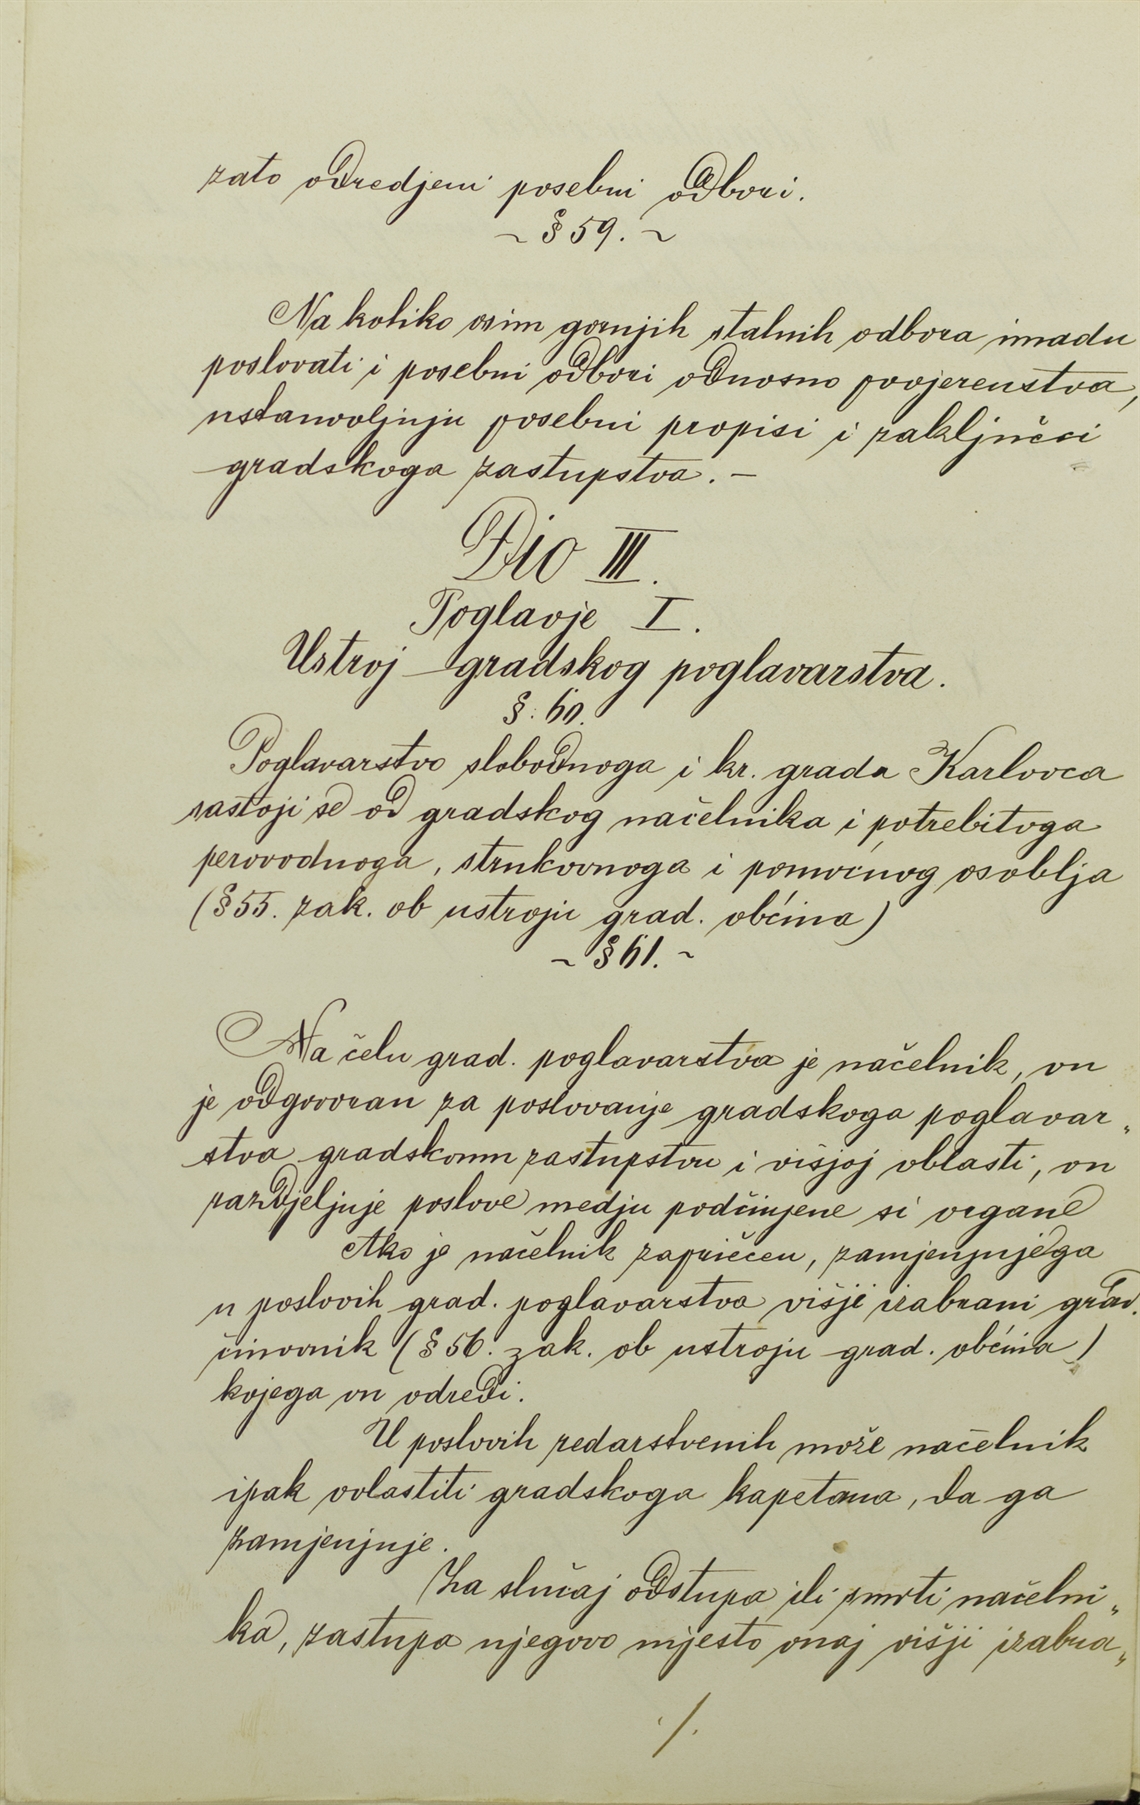 zato odredjeni posebni odbori.
~ § 59. ~
Na koliko osim gornjih stalnih odbora imadu
poslovati i posebni odbori odnosno povjerenstva,
ustanovljuju posebni propisi i zaključci
gradskoga zastupstva. —
Dio III.
Poglavje I.
Ustroj gradskog poglavarstva.
§. 60.
Poglavarstvo slobodnoga i kr. grada Karlovca
sastoji se od gradskog načelnika i potrebitoga
perovodnoga, strukovnoga i pomoćnog osoblja
(§ 55. zak. ob ustroju grad. obćina)
~ § 61. ~
Na čelu grad. poglavarstva je načelnik, on
je odgovoran za poslovanje gradskoga poglavar„
stva gradskomu zastupstvu i višjoj oblasti, on
razdjeljuje poslove medju podčinjene si organe
Ako je načelnik zapriečen, zamjenjuje ga
u poslovih grad. poglavarstva višji izabrani grad.
činovnik (§ 56. zak. ob ustroju grad. obćina)
kojega on odredi.
U poslovih redarstvenih može načelnik
ipak ovlastiti gradskoga kapetana, da ga
zamjenjuje.
Za slučaj odstupa ili smrti načelni„
ka, zastupa njegovo mjesto onaj višji izabra„
./.